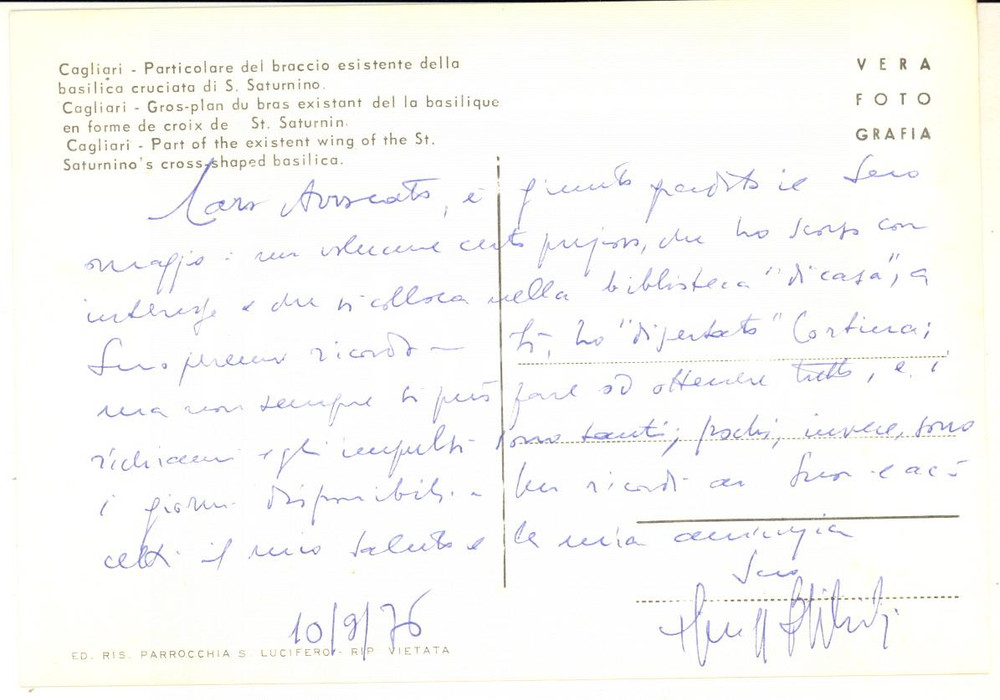 Cagliari - Particolare del braccio esistente della
basilica cruciata di S. Saturnino.
Cagliari - Gros-plan du bras existant del la basilique
en forme de croix de St. Saturnin.
Cagliari - Part of the existent wing of the St.
Saturnino's cross-shaped basilica.
VERA
FOTO
GRAFIA
Caro Avvocato, è giunto gradito il Suo
omaggio: un volume certo, che ho scorso con
interesse e che si colloca nella biblioteca "di casa", a
Suo perenne ricordo - Sì, ho "disertato" Cortina;
ma non sempre si può fare ed ottenere tutto, e i
richiami e gli impulsi sono tanti; pochi, invece, sono
i giorni disponibili. - mi ricordi ai Suoi e ac-
cetti il mio saluto e la mia amicizia
Suo
10/9/76
ED. RIS. PARROCCHIA S. LUCIFERO - RIP. VIETATA